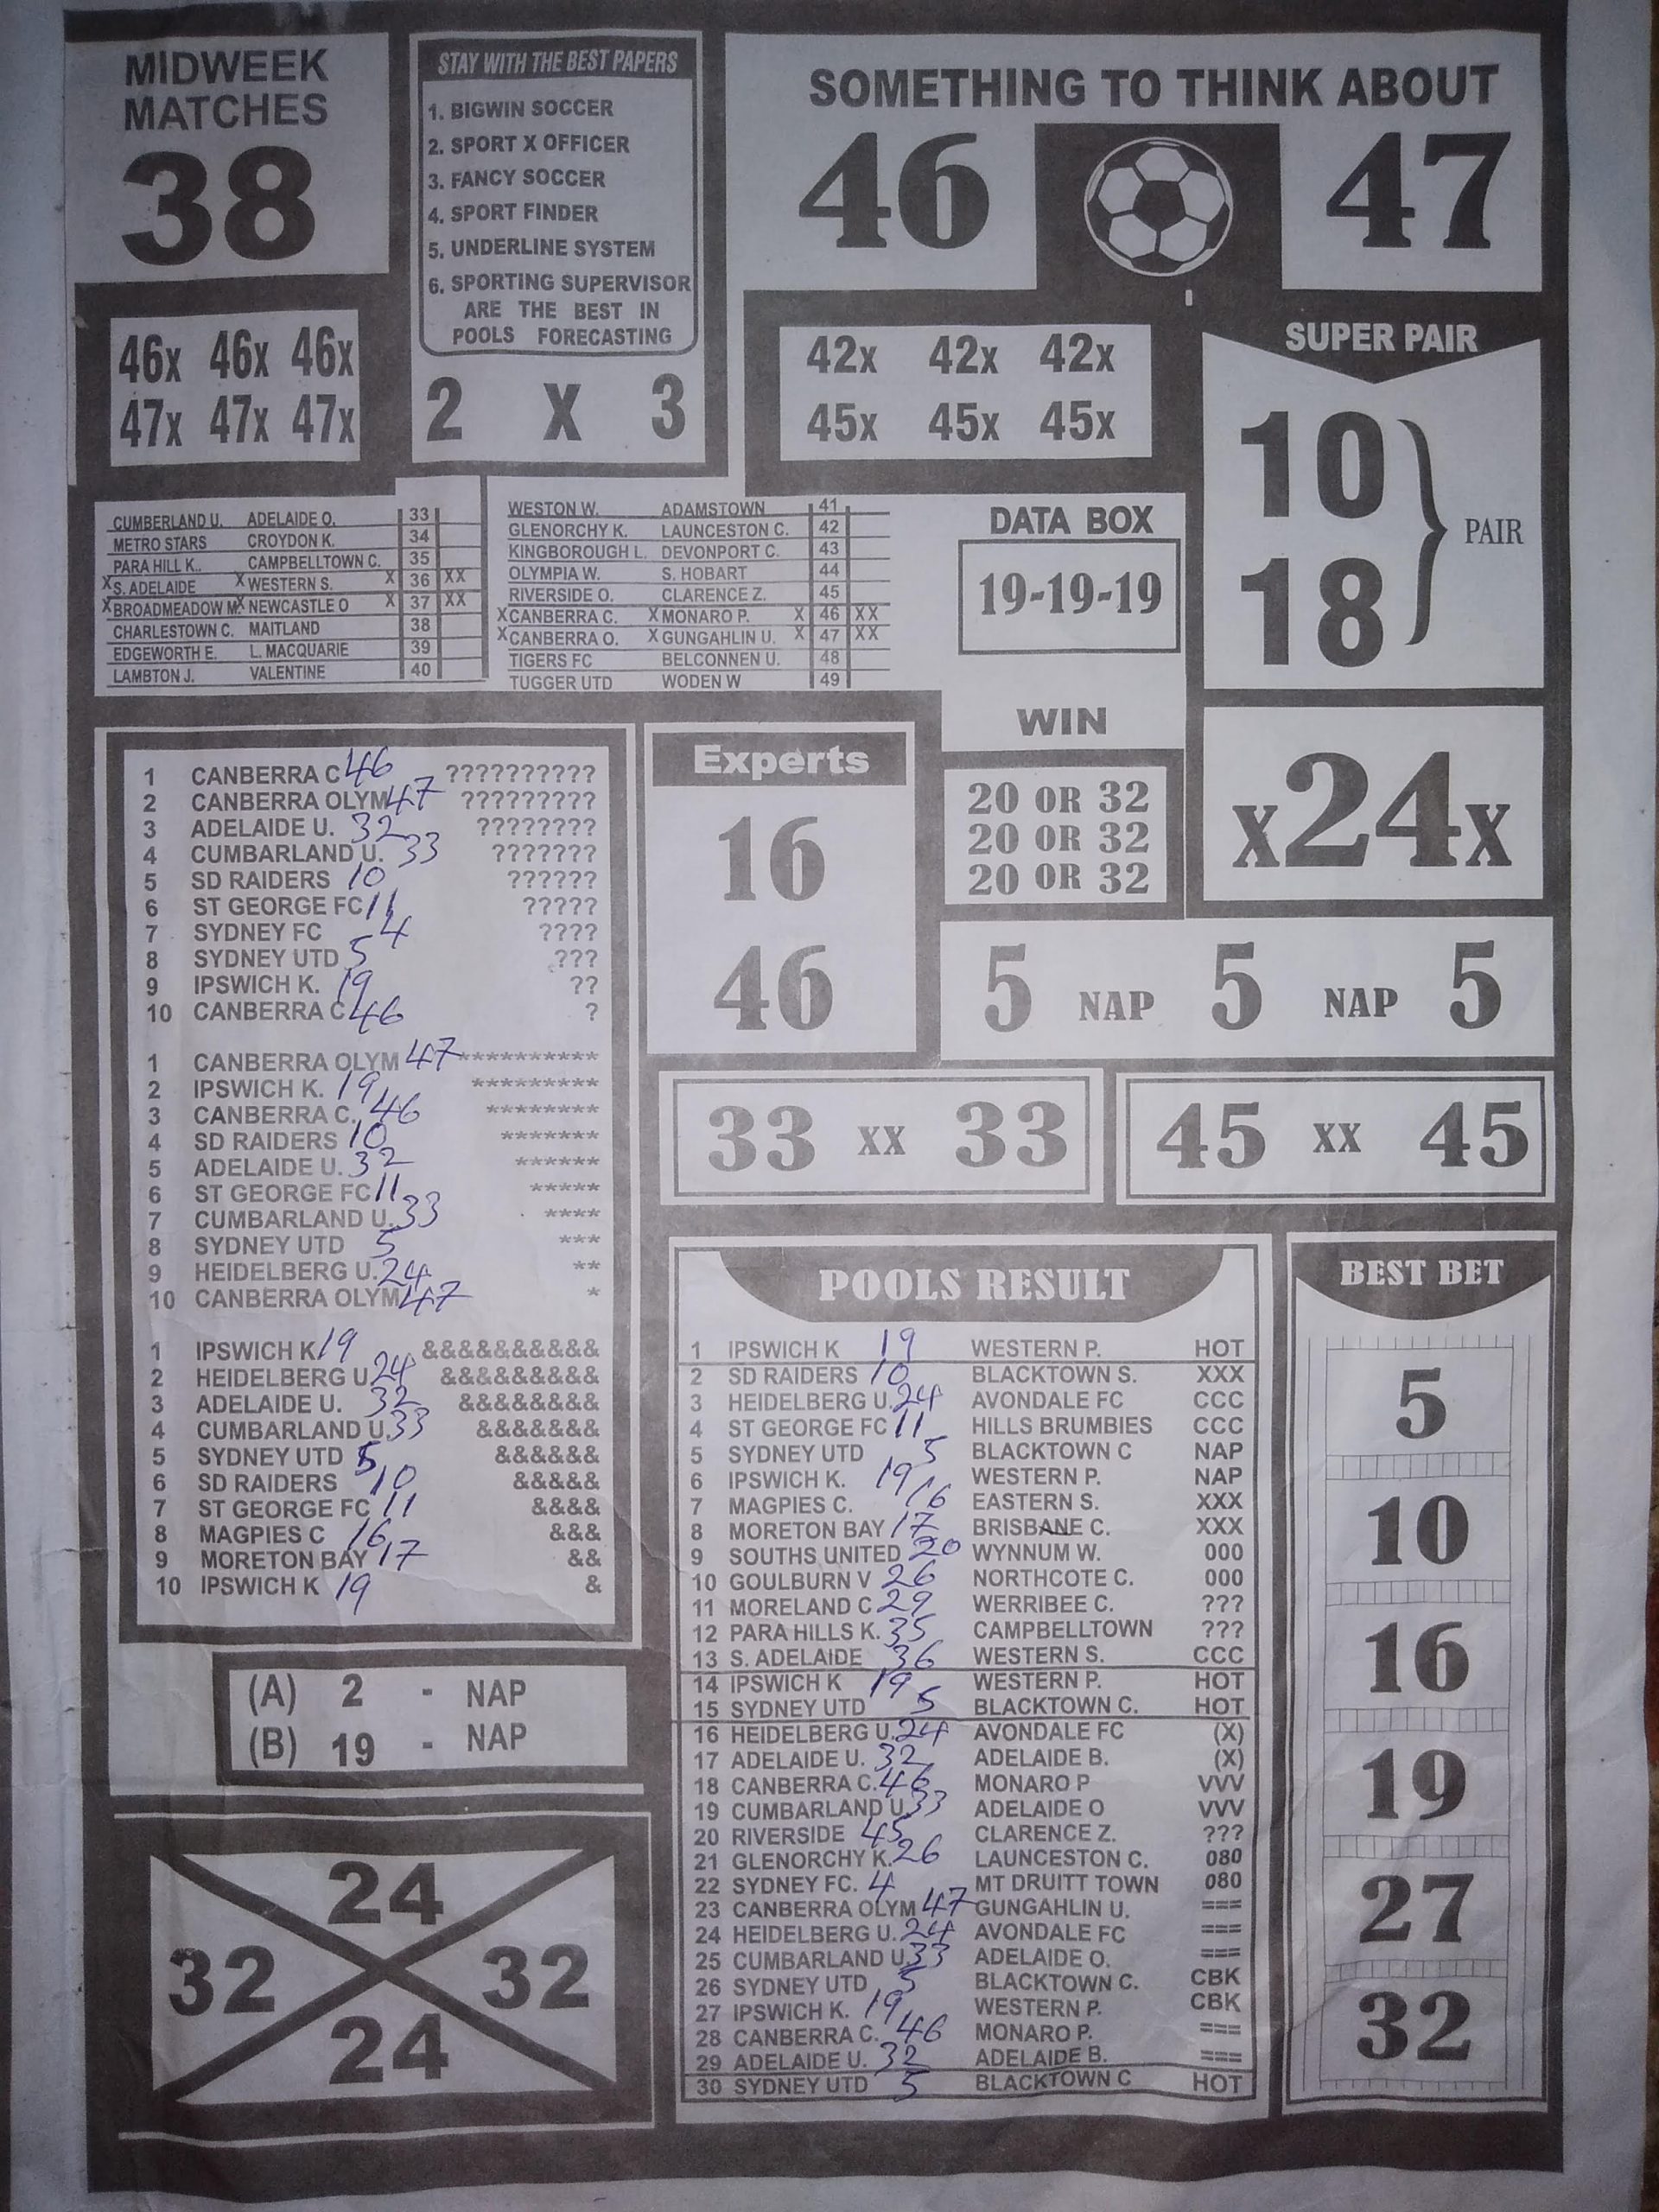 MIDWEEK
MATCHES
38
STAY WITH THE BEST PAPERS
1. BIGWIN SOCCER
2. SPORT X OFFICER
3. FANCY SOCCER
4. SPORT FINDER
5. UNDERLINE SYSTEM
6. SPORTING SUPERVISOR
ARE THE BEST IN
POOLS FORECASTING
2 X 3
SOMETHING TO THINK ABOUT
46 47
46x 46x 46x
47x 47x 47x
42x 42x 42x
45x 45x 45x
SUPER PAIR
10
18
PAIR
CUMBERLAND U. ADELAIDE O. 33
METRO STARS CROYDON K. 34
PARA HILL K.. CAMPBELLTOWN C. 35
X S. ADELAIDE X WESTERN S. X 36 XX
X BROADMEADOW M. X NEWCASTLE O X 37 XX
CHARLESTOWN C. MAITLAND 38
EDGEWORTH E. L. MACQUARIE 39
LAMBTON J. VALENTINE 40
WESTON W. ADAMSTOWN 41
GLENORCHY K. LAUNCESTON C. 42
KINGBOROUGH L. DEVONPORT C. 43
OLYMPIA W. S. HOBART 44
RIVERSIDE O. CLARENCE Z. 45
X CANBERRA C. X MONARO P. X 46 XX
X CANBERRA O. X GUNGAHLIN U. X 47 XX
TIGERS FC BELCONNEN U. 48
TUGGER UTD WODEN W 49
DATA BOX
19-19-19
WIN
20 OR 32
20 OR 32
20 OR 32
x24x
1 CANBERRA C 46 ??????????
2 CANBERRA OLYM 47 ?????????
3 ADELAIDE U. 32 ????????
4 CUMBARLAND U. 33 ???????
5 SD RAIDERS 10 ??????
6 ST GEORGE FC 11 ?????
7 SYDNEY FC 4 ????
8 SYDNEY UTD 5 ???
9 IPSWICH K. 19 ??
10 CANBERRA C 46 ?
1 CANBERRA OLYM 47 **********
2 IPSWICH K. 19 *********
3 CANBERRA C. 46 ********
4 SD RAIDERS 10 *******
5 ADELAIDE U. 32 ******
6 ST GEORGE FC 11 *****
7 CUMBARLAND U. 33 ****
8 SYDNEY UTD 5 ***
9 HEIDELBERG U. 24 **
10 CANBERRA OLYM 47 *
1 IPSWICH K 19 &&&&&&&&&&
2 HEIDELBERG U 24 &&&&&&&&&
3 ADELAIDE U. 32 &&&&&&&&
4 CUMBARLAND U. 33 &&&&&&&
5 SYDNEY UTD 5 &&&&&&
6 SD RAIDERS 10 &&&&&
7 ST GEORGE FC 11 &&&&
8 MAGPIES C 16 &&&
9 MORETON BAY 17 &&
10 IPSWICH K 19 &
Experts
16
46
5 NAP 5 NAP 5
33 XX 33
45 XX 45
(A) 2 - NAP
(B) 19 - NAP
24
32 32
24
POOLS RESULT
1 IPSWICH K 19 WESTERN P. HOT
2 SD RAIDERS 10 BLACKTOWN S. XXX
3 HEIDELBERG U. 24 AVONDALE FC CCC
4 ST GEORGE FC 11 HILLS BRUMBIES CCC
5 SYDNEY UTD 5 BLACKTOWN C NAP
6 IPSWICH K. 19 WESTERN P. NAP
7 MAGPIES C. 16 EASTERN S. XXX
8 MORETON BAY 17 BRISBANE C. XXX
9 SOUTHS UNITED 20 WYNNUM W. 000
10 GOULBURN V 26 NORTHCOTE C. 000
11 MORELAND C 29 WERRIBEE C. ???
12 PARA HILLS K. 35 CAMPBELLTOWN ???
13 S. ADELAIDE 36 WESTERN S. CCC
14 IPSWICH K 19 WESTERN P. HOT
15 SYDNEY UTD 5 BLACKTOWN C. HOT
16 HEIDELBERG U. 24 AVONDALE FC (X)
17 ADELAIDE U. 32 ADELAIDE B. (X)
18 CANBERRA C. 46 MONARO P VVV
19 CUMBARLAND U 33 ADELAIDE O VVV
20 RIVERSIDE 45 CLARENCE Z. ???
21 GLENORCHY K. 26 LAUNCESTON C. 080
22 SYDNEY FC. 4 MT DRUITT TOWN 080
23 CANBERRA OLYM 47 GUNGAHLIN U. ===
24 HEIDELBERG U. 24 AVONDALE FC ===
25 CUMBARLAND U 33 ADELAIDE O. ===
26 SYDNEY UTD 5 BLACKTOWN C. CBK
27 IPSWICH K. 19 WESTERN P. CBK
28 CANBERRA C. 46 MONARO P. ===
29 ADELAIDE U. 32 ADELAIDE B. ===
30 SYDNEY UTD 5 BLACKTOWN C HOT
BEST BET
5
10
16
19
27
32